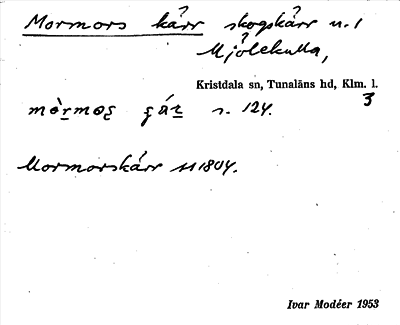 Mormors kärr skogskärr n. 1
Mjölekulla,
Kristdala sn, Tunaläns hd, Klm. l.
3
s. 124.
Mormorskärr 1804.
Ivar Modéer 1953